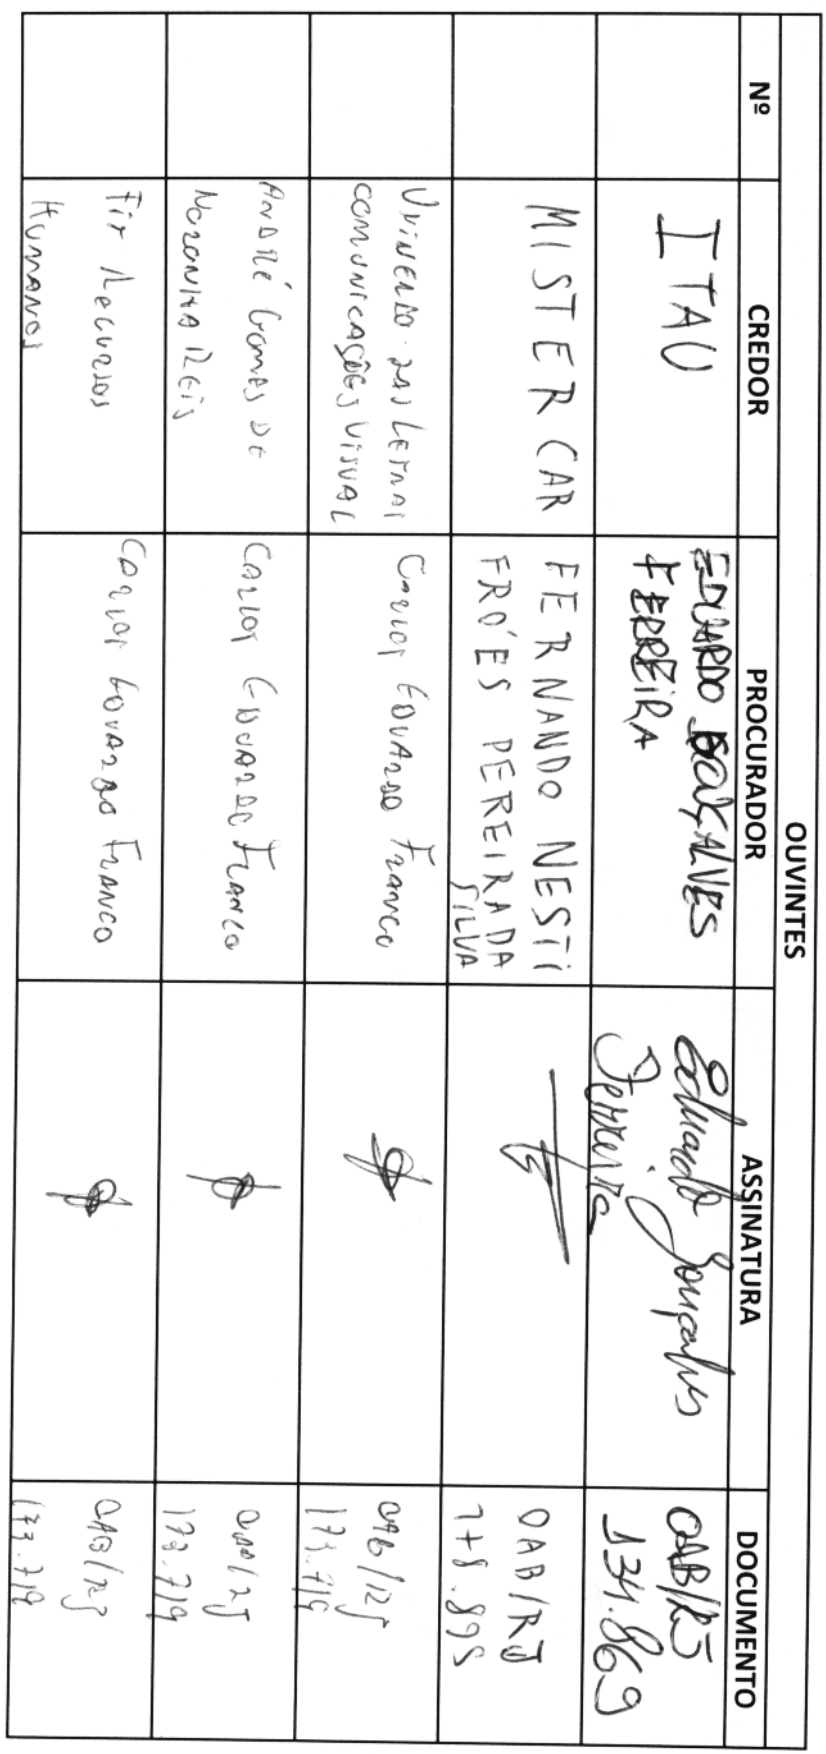 OUVINTES
Nº CREDOR PROCURADOR ASSINATURA DOCUMENTO
ITAU
EDUARDO GONÇALVES
FERREIRA
Eduardo Gonçalves
Ferreira
OAB/RJ
134.869
MISTER CAR
FERNANDO NESTI
FRÓES PEREIRA DA
SILVA
OAB/RJ
Letras
comunicações visual
Carlos Eduardo Franco
OAB/RJ
173.719
André Gomes de
Noronha Reis
Carlos Eduardo Franco
OAB/RJ
173.719
Fit Recursos
Humanos
Carlos Eduardo Franco
OAB/RJ
173.719